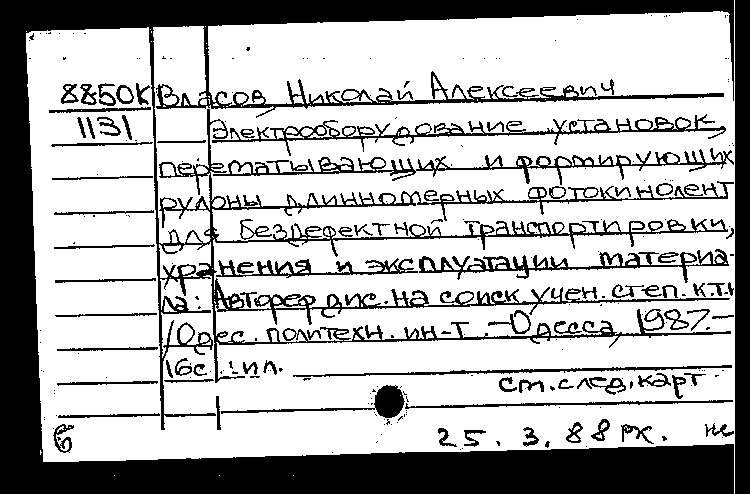 8850К Власов, Николай Алексеевич
1131 Электрооборудование установок,
перематывающих и формирующих
рулоны длинномерных фотокинолент
для бездефектной транспортировки,
хранения и эксплуатации материа-
ла: Автореф дис. на соиск. учен. степ. к.т.н
/Одес. политехн. ин-т. – Одесса, 1987. –
16с.: ил.
см. след. карт
6 25. 3. 88 рк. не